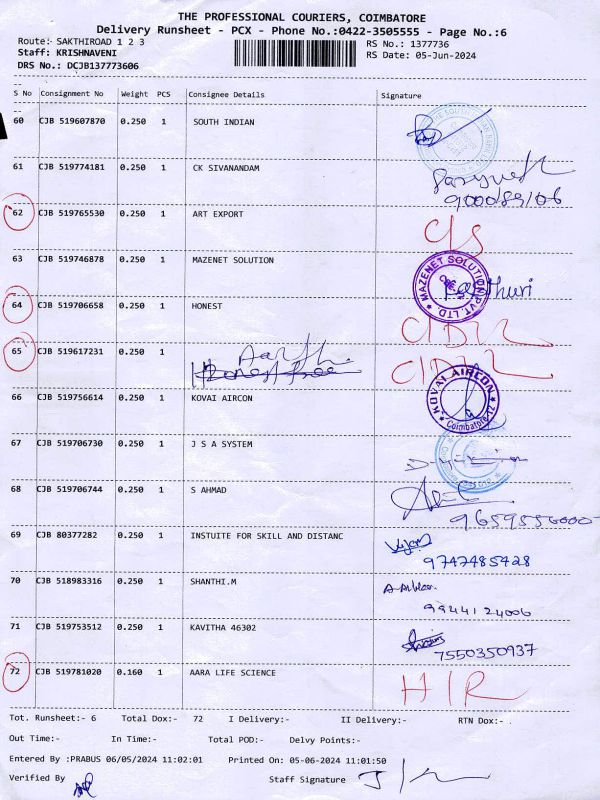 THE PROFESSIONAL COURIERS, COIMBATORE
Delivery Runsheet - PCX - Phone No.:0422-3505555 - Page No.:6
Route: SAKTHIROAD 1 2 3
RS No.: 1377736
Staff: KRISHNAVENI
RS Date: 05-Jun-2024
DRS No.: DCJB137773606
S No Consignment No Weight PCS Consignee Details Signature
60 CJB 519607870 0.250 1 SOUTH INDIAN
61 CJB 519774181 0.250 1 CK SIVANANDAM
62 CJB 519765530 0.250 1 ART EXPORT
63 CJB 519746878 0.250 1 MAZENET SOLUTION
MAZENET SOLUTION PVT LTD.
64 CJB 519706658 0.250 1 HONEST
65 CJB 519617231 0.250 1
66 CJB 519756614 0.250 1 KOVAI AIRCON
KOVAI AIRCON
Coimbatore
67 CJB 519706730 0.250 1 J S A SYSTEM
68 CJB 519706744 0.250 1 S AHMAD
9659556000
69 CJB 80377282 0.250 1 INSTUITE FOR SKILL AND DISTANC
9747485428
70 CJB 518983316 0.250 1 SHANTHI.M
9944124006
71 CJB 519753512 0.250 1 KAVITHA 46302
7550350937
72 CJB 519781020 0.160 1 AARA LIFE SCIENCE
Tot. Runsheet:- 6 Total Dox:- 72 I Delivery:- II Delivery:- RTN Dox:-
Out Time:- In Time:- Total POD:- Delvy Points:-
Entered By :PRABUS 06/05/2024 11:02:01 Printed On: 05-06-2024 11:01:50
Verified By
Staff Signature